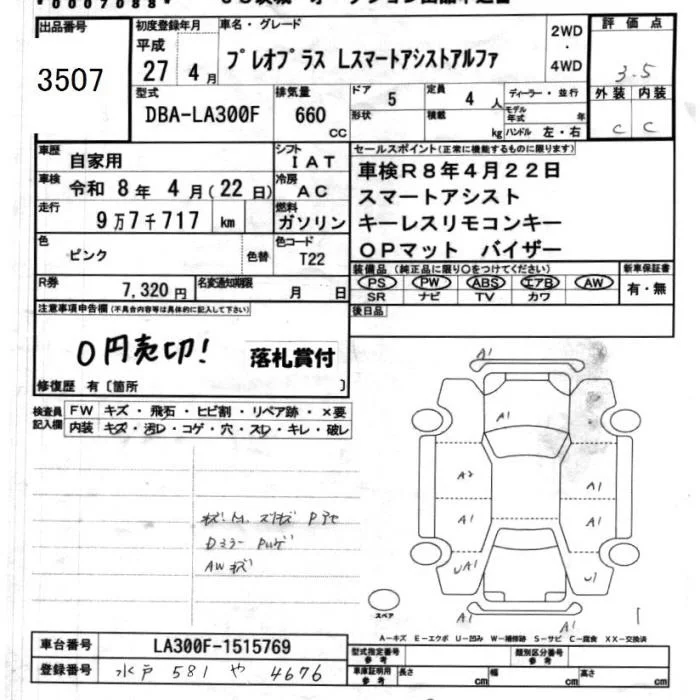 0007088
出品番号 初度登録年月 車名・グレード 2WD・4WD 評価点
3507
平成 27 4月 プレオプラス Lスマートアシストアルファ 3.5
型式 排気量 ドア 5 定員 4人 ディーラー・並行 外装 内装
DBA-LA300F 660 CC 形状 積載 kg モデル年式 年 ハンドル 左・右 C C
車歴 自家用 シフト IAT セールスポイント(正常に機能するものに限ります)
車検 令和 8年 4月(22日) 冷房 AC 車検R8年4月22日
走行 9万7千717 km 燃料 ガソリン スマートアシスト
キーレスリモコンキー
色 ピンク 色替 色コード T22 OPマット バイザー
R券 7,320円 名変通知期限 月 日
装備品(純正品に限り○をつけてください) 新車保証書
PS PW ABS エアB AW 有・無
SR ナビ TV カワ
注意事項申告欄(不具合内容等は具体的に記入して下さい) 後日品
0円売切!
落札賞付
修復歴 有〔箇所 〕
検査員記入欄 FW キズ・飛石・ヒビ割・リペア跡・×要
内装 キズ・汚レ・コゲ・穴・スレ・キレ・破レ
A1
A1
A2 A1
A1 A1
UA1 U1
A1 A1
Dミラー
AWキズ
スペア
A-キズ E-エクボ U-凹み W-補修跡 S-サビ C-腐食 XX-交換済
車台番号 LA300F-1515769 型式指定番号 参考 類別区分番号 参考
登録番号 水戸 581 や 4676 車庫証明用 参考 長さ cm 幅 cm 高さ cm